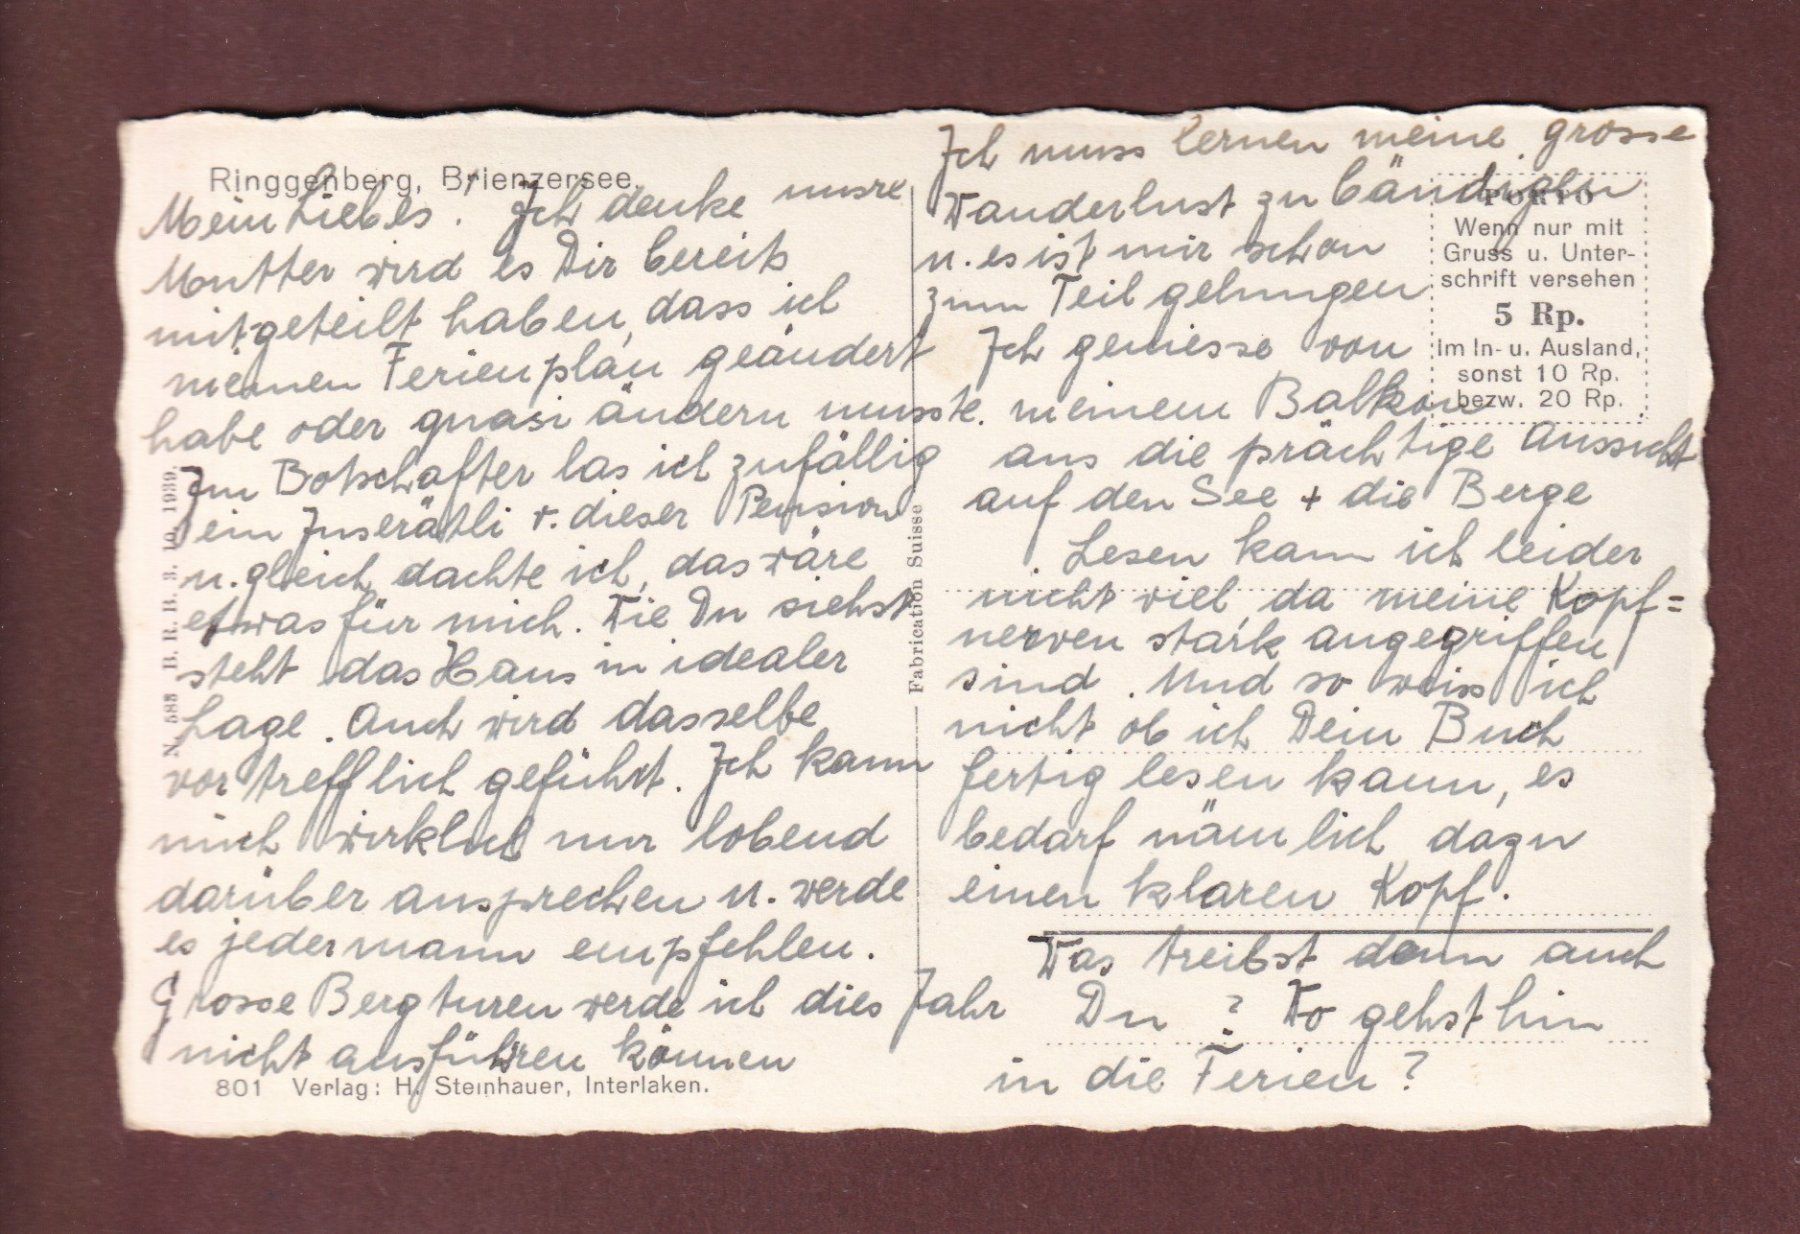 Ringgenberg, Brienzersee.
Mein Liebes! Ich denke unsre
Mutter wird es Dir bereits
mitgeteilt haben, dass ich
meinen Ferienplan geändert
habe oder quasi ändern musste.
Im Botschafter las ich zufällig
ein Inserätli v. dieser Pension
u. gleich dachte ich, das wäre
etwas für mich. Wie Du siehst
steht das Haus in idealer
Lage. Auch wird dasselbe
vortrefflich geführt. Ich kann
mich wirklich nur lobend
darüber aussprechen u. werde
es jedermann empfehlen.
Grosse Bergturen werde ich dies Jahr
nicht ausführen können
801 Verlag: H. Steinhauer, Interlaken.
N. 583 B. R. B. 3. 10. 1939.
Fabrication Suisse
Ich muss lernen meine grosse
Wanderlust zu bändigen
u. es ist mir schon
zum Teil gelungen
Ich geniesse von
meinem Balkon
aus die prächtige Aussicht
auf den See + die Berge
Lesen kann ich leider
nicht viel da meine Kopf=
nerven stark angegriffen
sind. Und so weiss ich
nicht ob ich Dein Buch
fertig lesen kann, es
bedarf nämlich dazu
einen klaren Kopf.
Was treibst denn auch
Du? Wo gehst hin
in die Ferien?
PORTO
Wenn nur mit
Gruss u. Unter-
schrift versehen
5 Rp.
Im In- u. Ausland,
sonst 10 Rp.
bezw. 20 Rp.